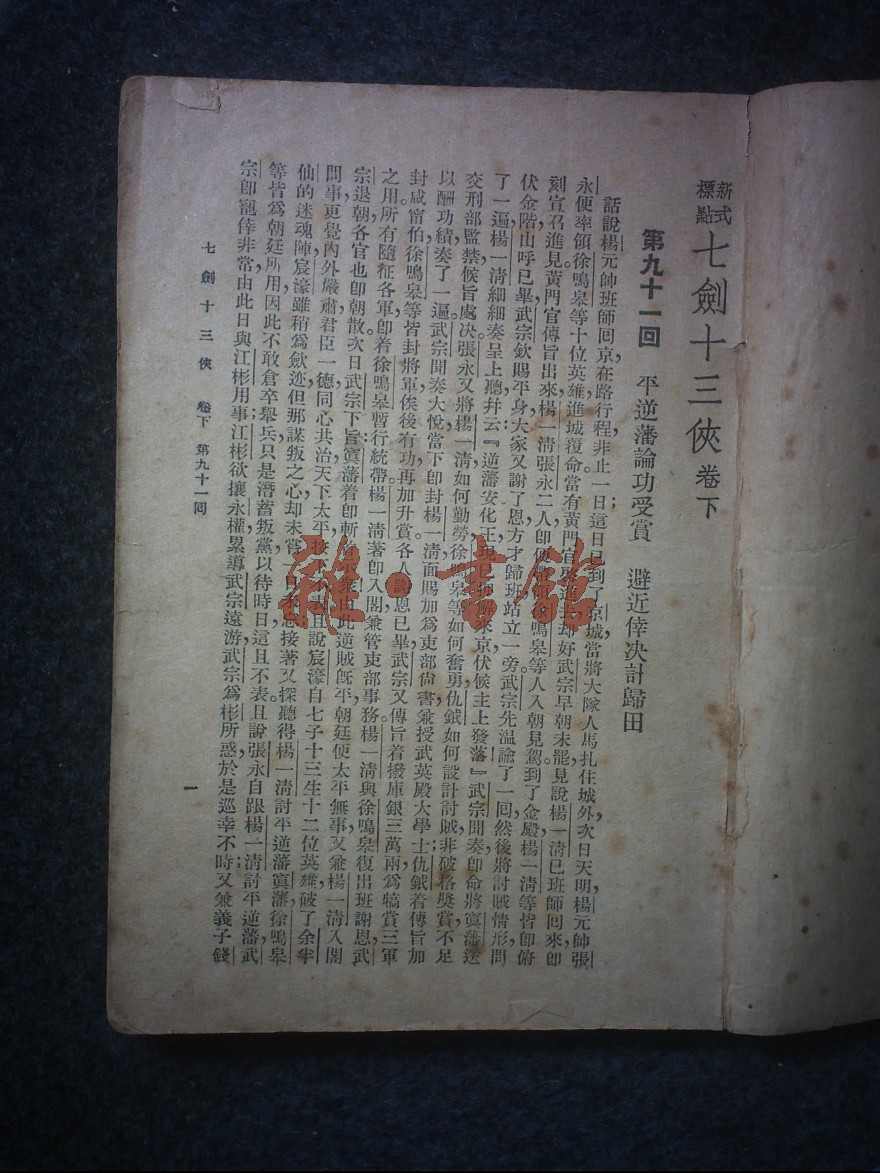 新式標點 七劍十三俠 卷下
第九十一回 平逆藩論功受賞 避近倖決計歸田
話說楊元帥班師回京，在路行程，非止一日；這日已到了京城，當將大隊人馬扎住城外，次日天明，楊元帥張
永便率領徐鳴皋等十位英雄進城覆命。當有黃門官 好武宗早朝未罷，見說楊一清已班師回來，即
刻宣召進見。黃門官傳旨出來，楊一清張永二人即便 領徐鳴皋等人入朝見駕。到了金殿，楊一清等皆卽俯
伏金階，山呼已畢，武宗欽賜平身，大家又謝了恩，方才歸班站立一旁。武宗先溫諭了一回，然後將討賊情形，問
了一遍。楊一清細細奏呈上聽，幷云：『逆藩安化王 來京，伏候主上發落。』武宗聞奏，卽命將寘藩送
交刑部監禁，候旨處决。張永又將楊一清如何勤勞，徐鳴皋等如何奮勇，仇鉞如何設計討賊，非破格獎賞，不足
以酬功績，奏了一遍。武宗聞奏大悅，當下卽封楊一清面賜加爲吏部尙書，兼授武英殿大學士；仇鉞着傳旨加
封咸甯伯；徐鳴皋等皆封將軍，俟後有功，再加升賞。各人謝恩已畢，武宗又傳旨着撥庫銀三萬兩，爲犒賞三軍
之用。所有隨征各軍，卽着徐鳴皋暫行統帶；楊一清著卽入閣，兼管吏部事務。楊一清與徐鳴皋復出班謝恩，武
宗退朝，各官也卽朝散。次日武宗下旨：寘藩着卽斬首 由此逆賊旣平，朝廷便太平無事，又兼楊一清入閣
問事，更覺內外嚴肅，君臣一德，同心共治，天下太平，接 表。且說宸濠自七子十三生十二位英雄破了余半
仙的迷魂陣，宸濠雖稍爲歛迹，但那謀叛之心，却未嘗一日 接著又探聽得楊一清討平逆藩寘藩，徐鳴皋
等皆爲朝廷所用，因此不敢倉卒舉兵，只是潛蓄叛黨，以待時日，這且不表。且說張永自跟楊一清討平逆藩，武
宗卽寵倖非常，由此日與江彬用事；江彬欲攘永權，累導武宗遠游，武宗爲彬所惑，於是巡幸不時，又兼義子錢
七劍十三俠 卷下 第九十一回
一
雜·書館